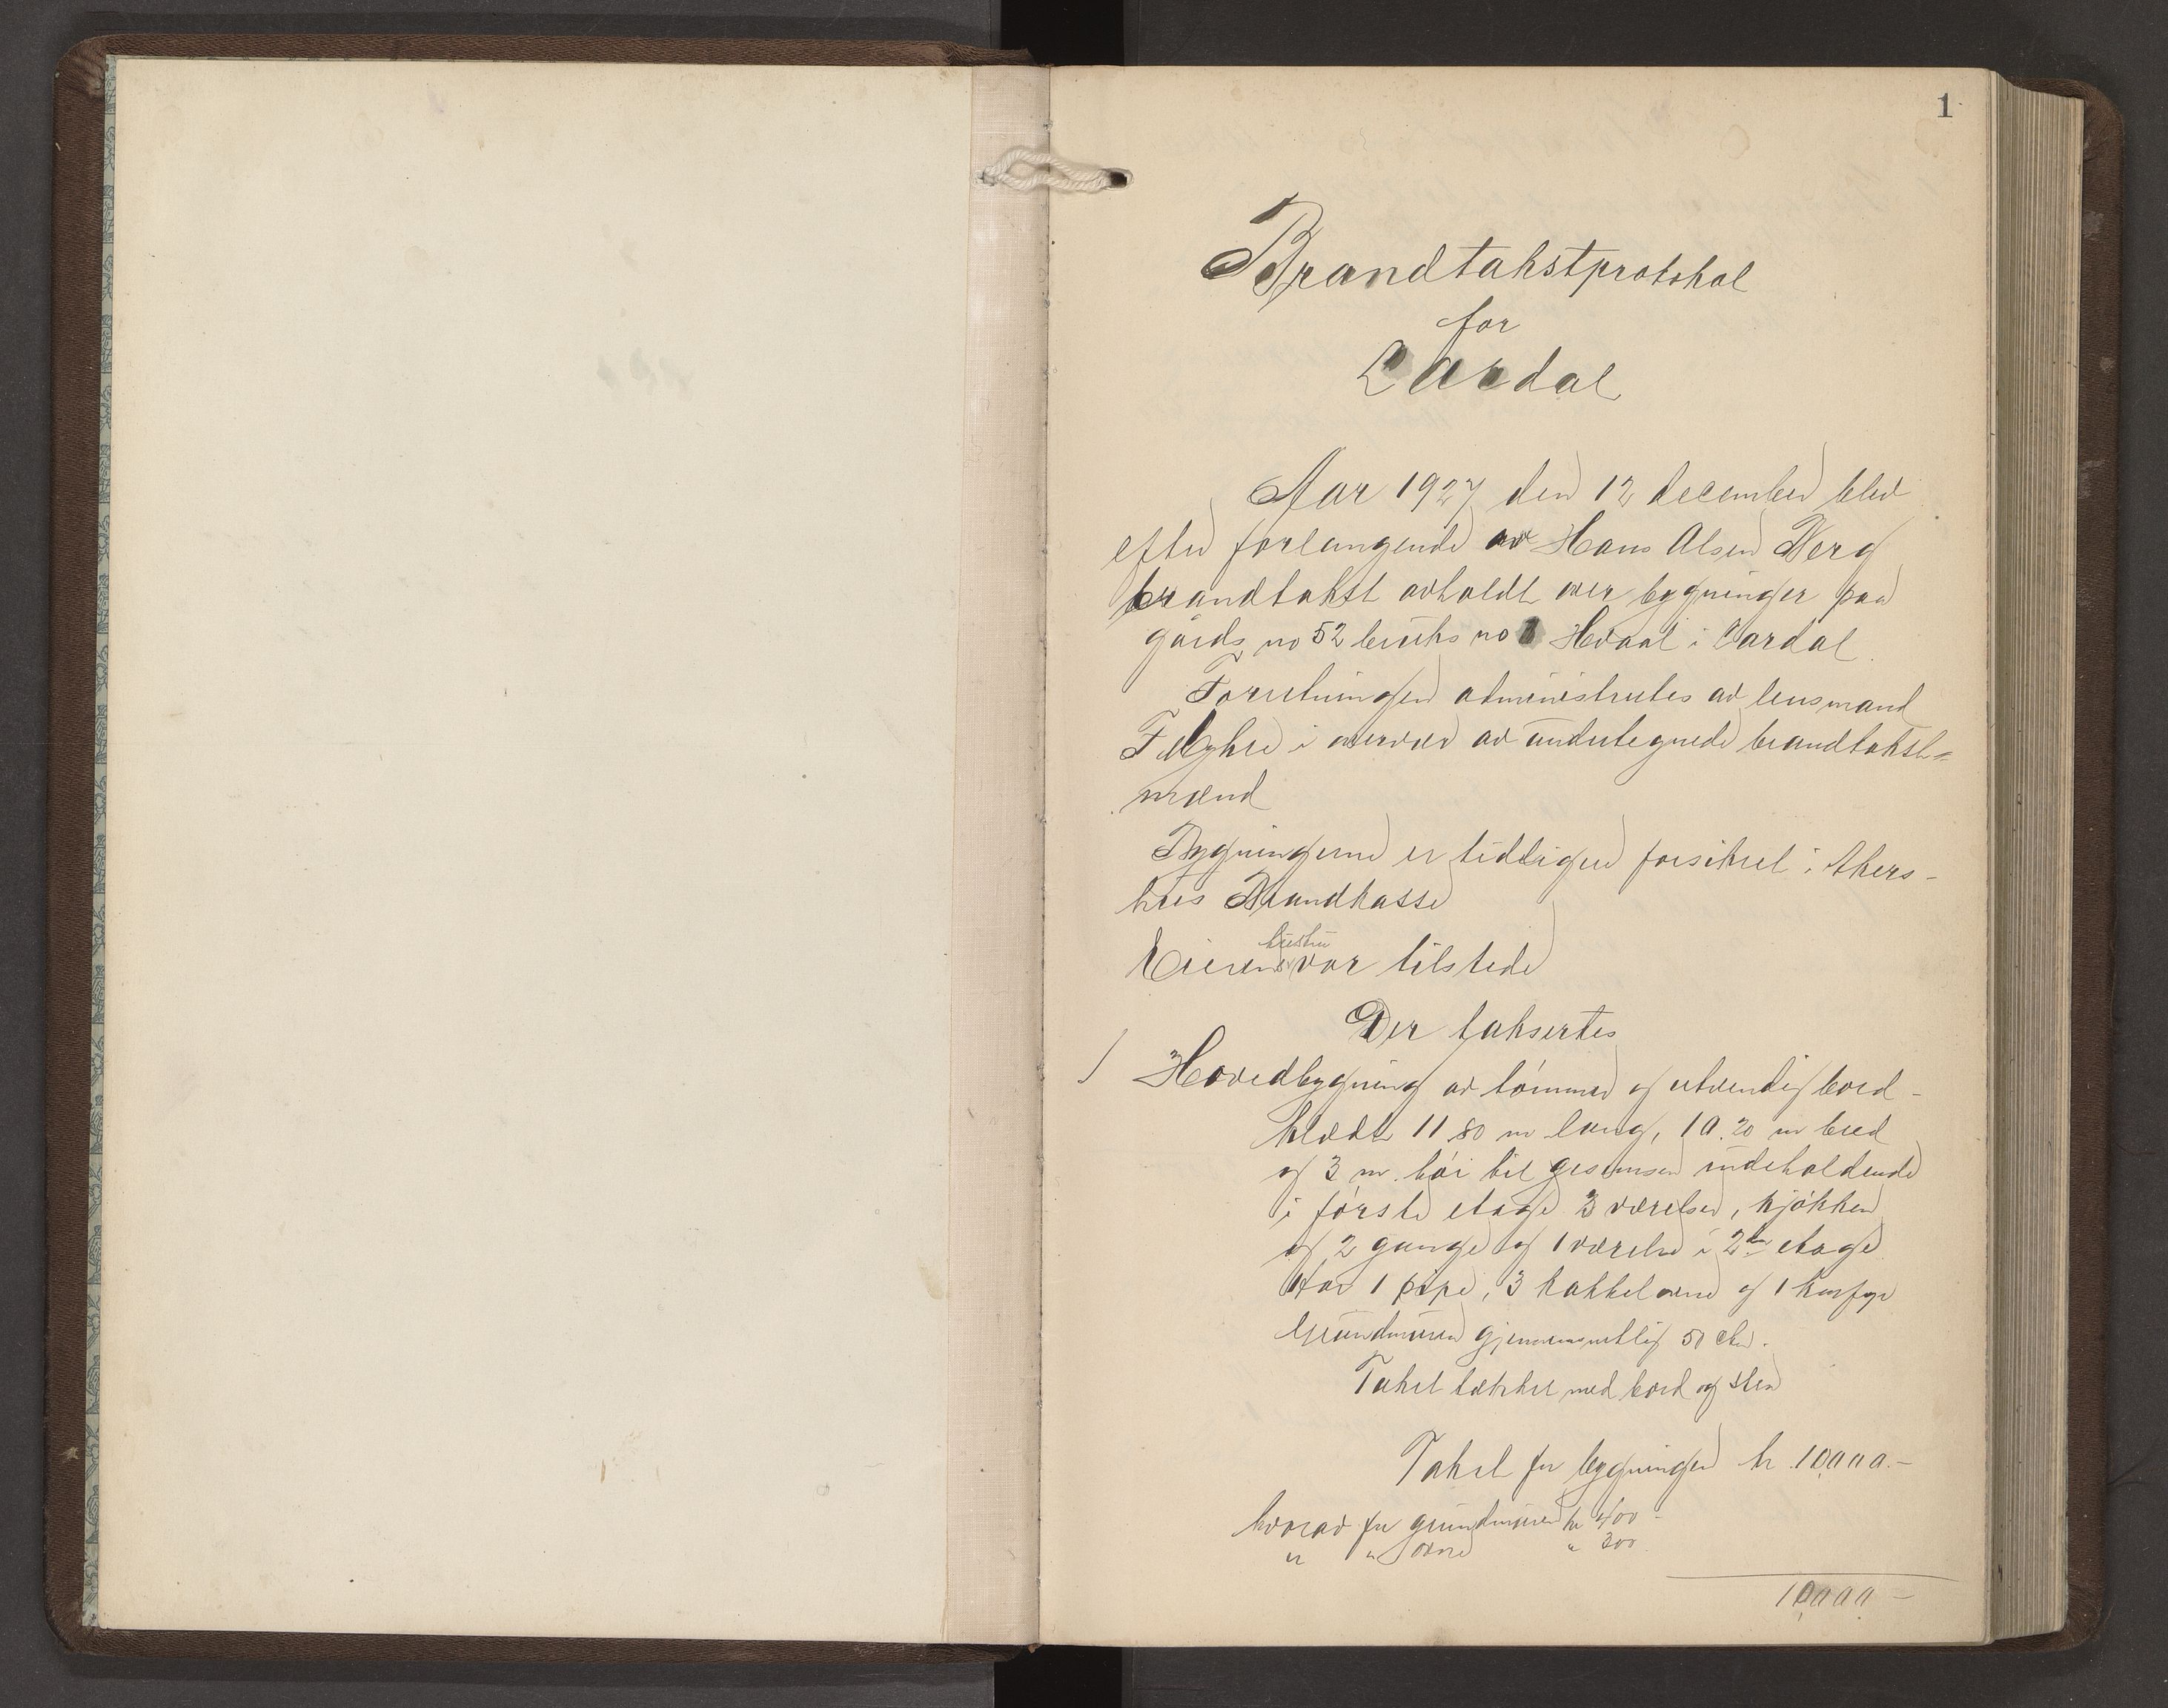 1
Brandtakstprotokol
for
Lardal
Aar 1927 den 12 december blev
efter forlangende av Hans Olsen Berg
brandtakst avholdt over bygninger paa
gårds no 52 bruks no 1 Hvaal i Lardal.
Forretningen administrertes av lensmand
F Myhre i overvær av undertegnede brandtakst-
mænd
Bygningerne er tidligere forsikret i Akers-
hus Brandkasse
hustru
Eierens var tilstede
Der taksertes
1 Hovedbygning av tømmer og utvendig bord-
klædt 11.80 m lang, 10.20 m bred
og 3 m. høi til gesimsen indeholdende
i første etage 3 værelser, kjøkken
og 2 gange og 1 værelse i 2den etage
Har 1 pipe, 3 kakkelovne og 1 komfyr
Grundmuren gjennemsnitlig 50 ctm.
Taket tækket med bord og sten
Takst for bygningen kr 10,000.-
hvorav for grundmuren kr 400-
" " ovne " 300
10,000 -